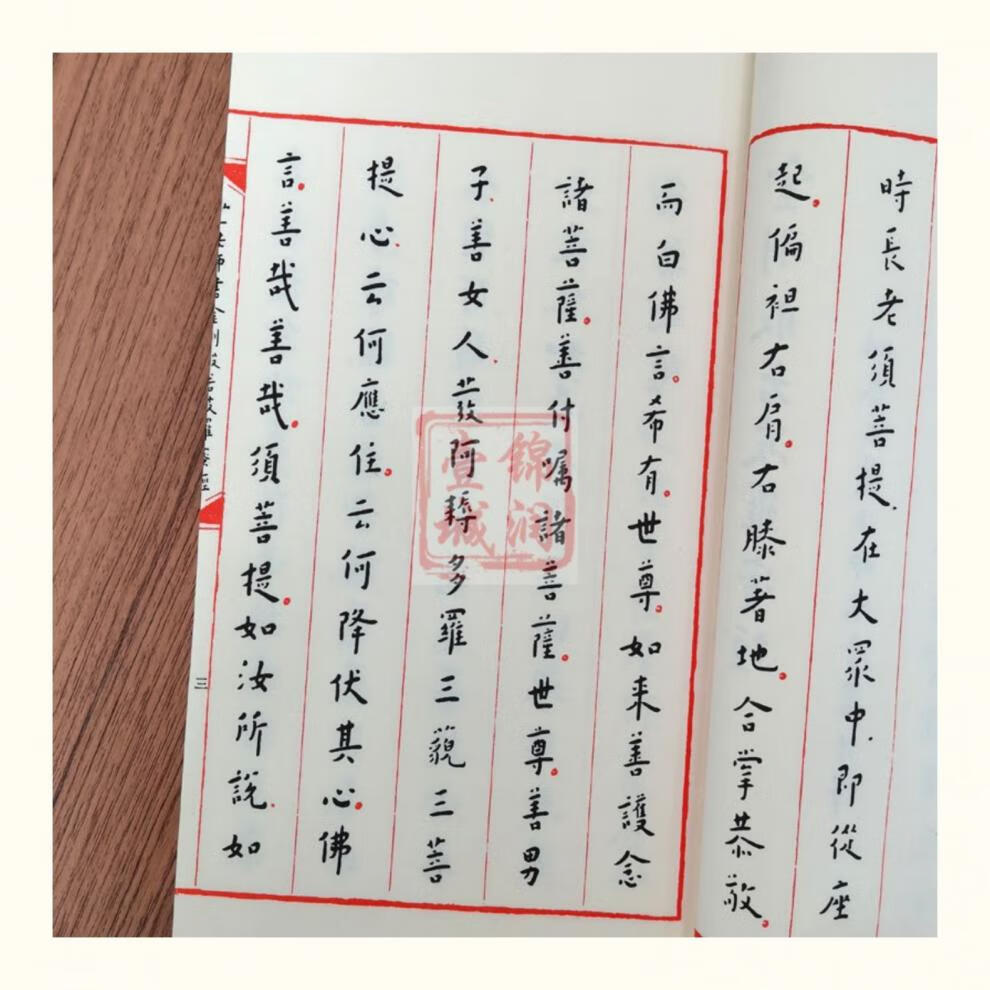 時長老須菩提。在大眾中。即從座
起。偏袒右肩。右膝著地。合掌恭敬。
而白佛言。希有。世尊。如来善護念
諸菩薩。善付囑諸菩薩。世尊。善男
子。善女人。發阿耨多羅三藐三菩
提心。云何應住。云何降伏其心。佛
言。善哉善哉。須菩提。如汝所說。如
三
錦润
壹城